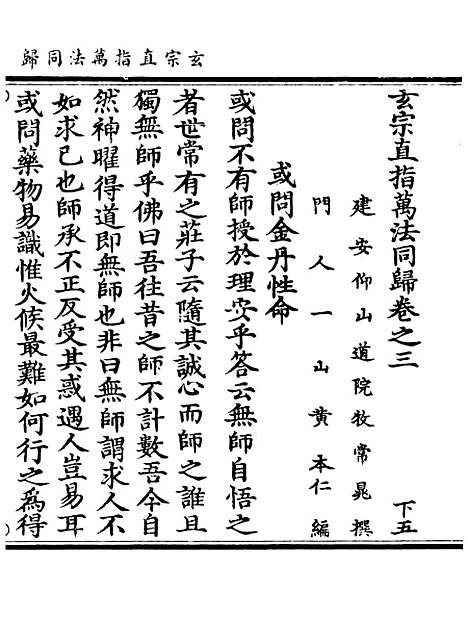 玄宗直指萬法同歸
玄宗直指萬法同歸卷之三
下五
建安仰山道院牧常晁撰
門人一山黄本仁編
或問金丹性命
或問不有師授於理安乎答云無師自悟之
者世常有之莊子云隨其誠心而師之誰且
獨無師乎佛曰吾往昔之師不計數吾今自
然神曜得道即無師也非曰無師謂求人不
如求已也師承不正反受其惑遇人豈易耳
或問藥物易識惟火候最難如何行之爲得